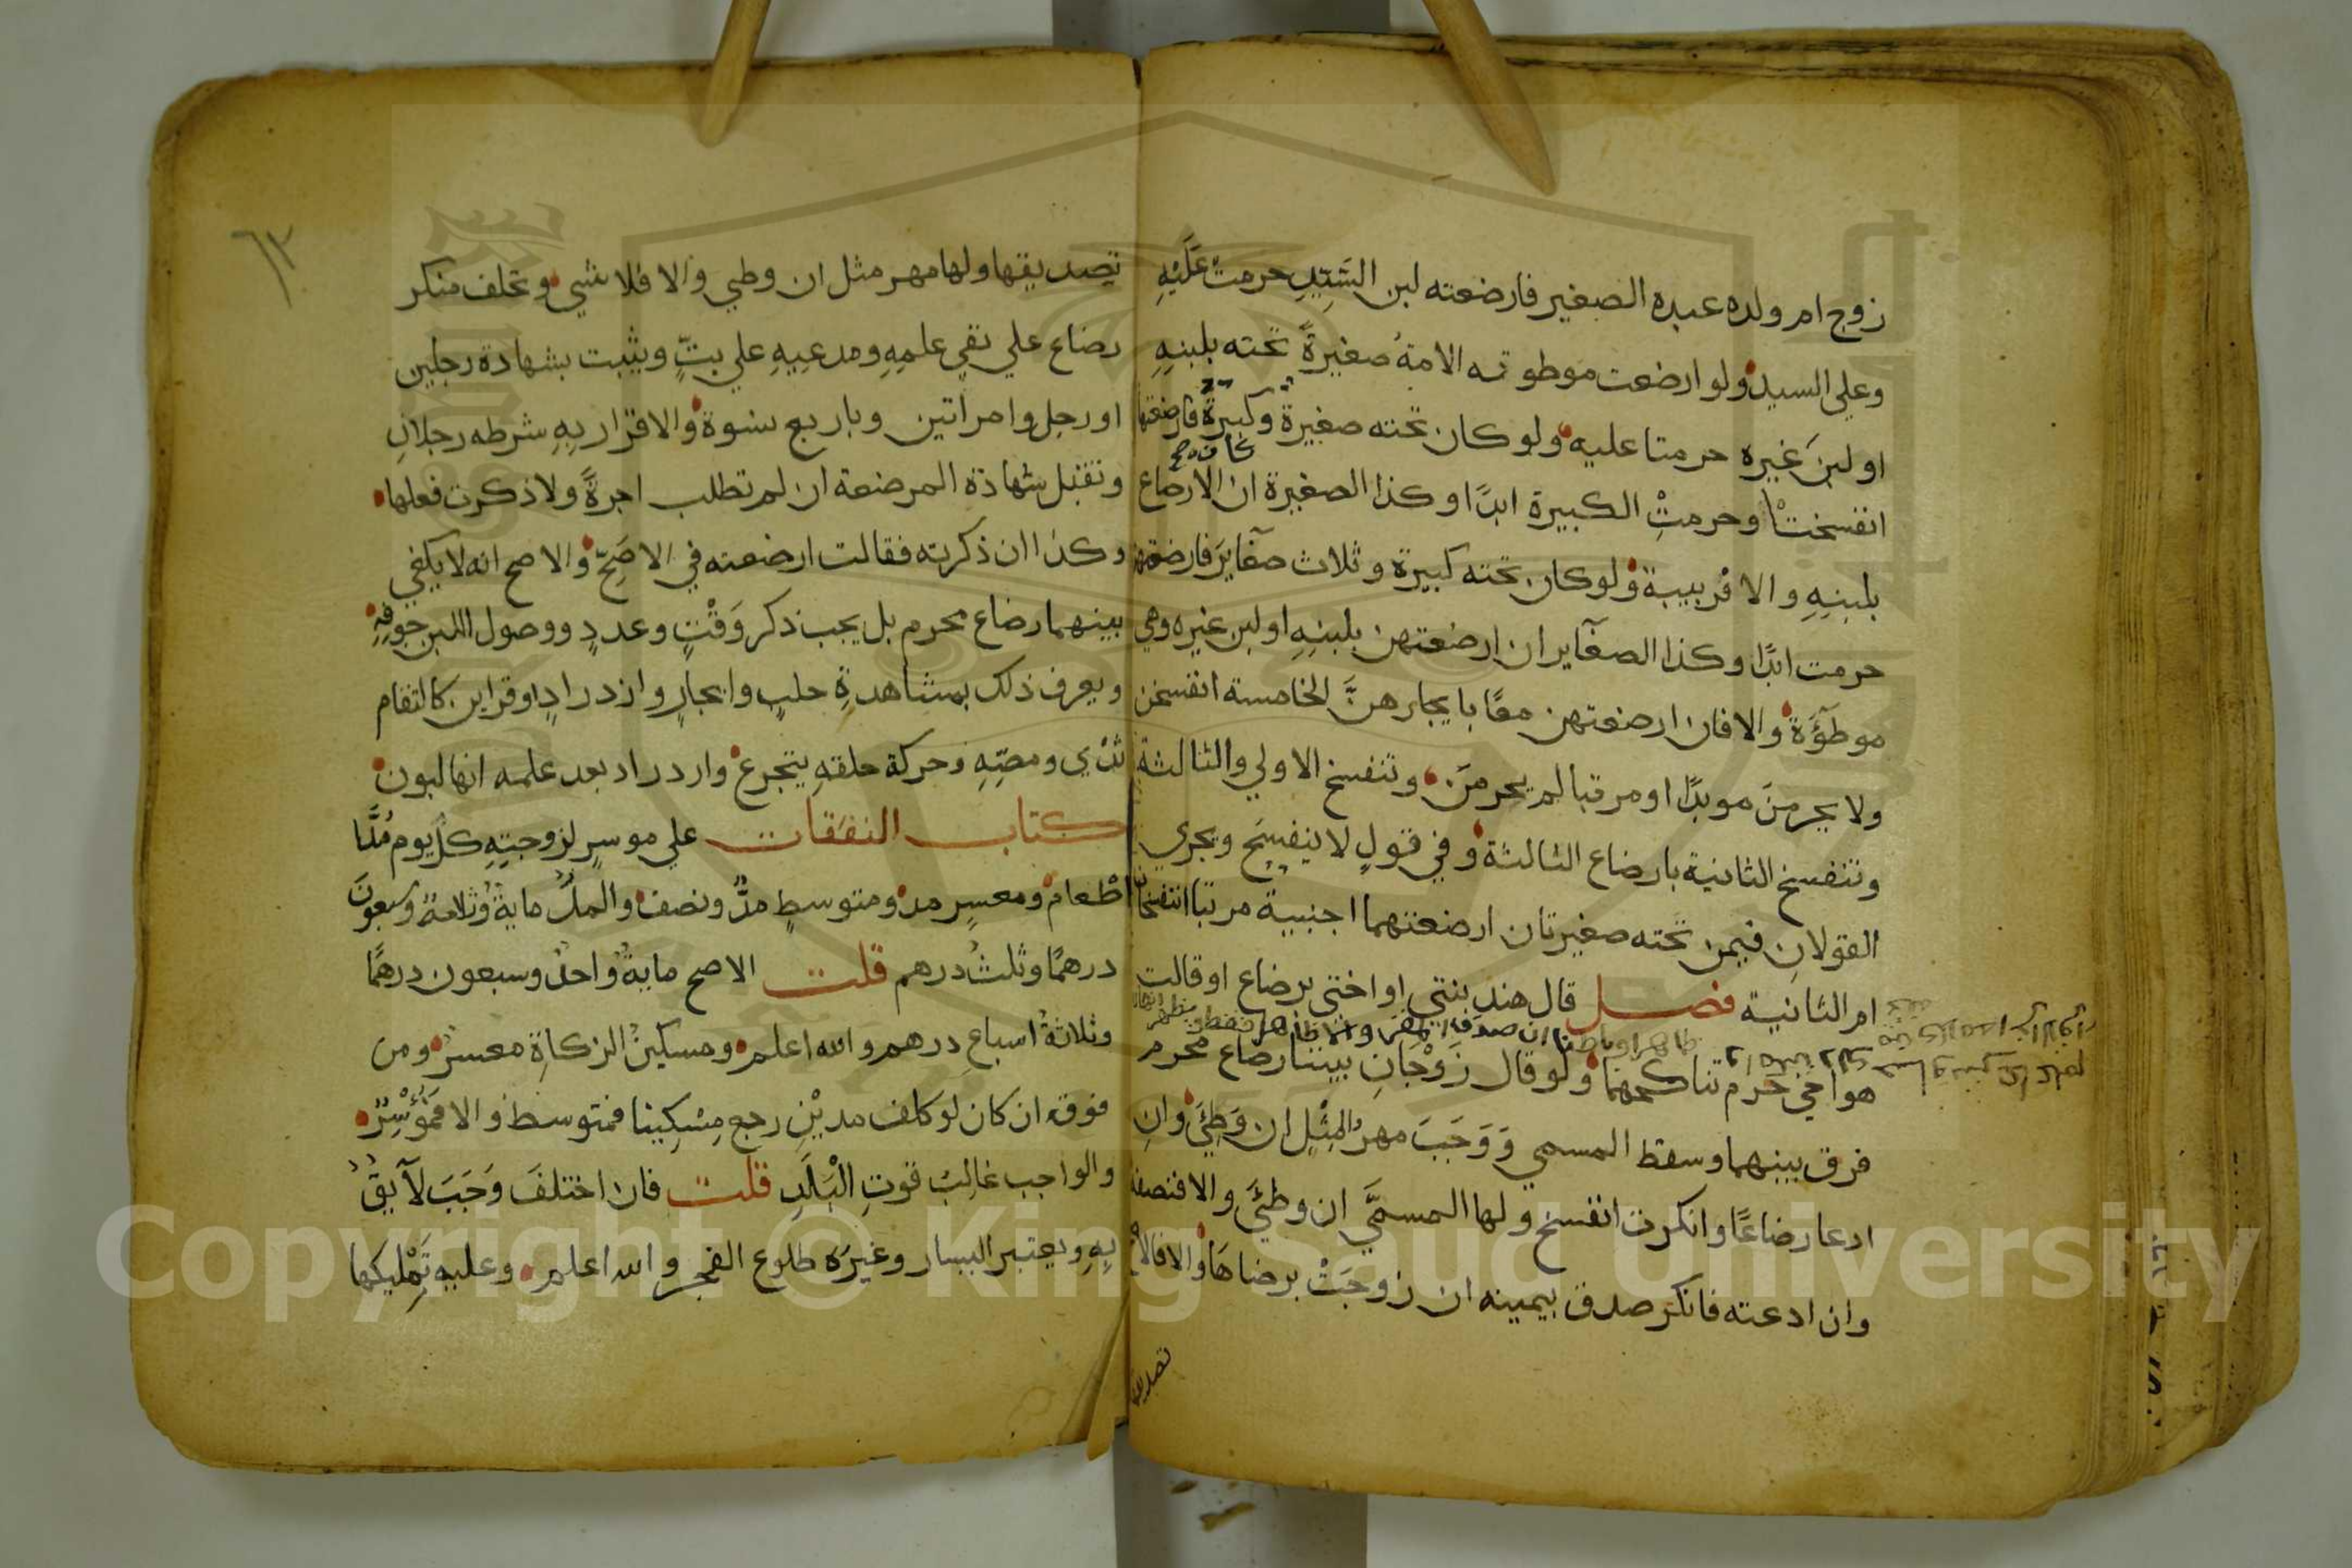 زوج ام ولده عبده الصغير فارضعته لبن السَّيِّدِ حرمت عَلَيْهِ
وعلي السيد ولو ارضعت موطوته الامةُ صغيرةً تحته بلبنِهِ
او لبنَ غيره حرمتا عليه ولو كان تحته صغيرة وكبيرة فارضعتها
انفسختا وحرمتِ الكبيرة ابدًا وكذا الصغيرة ان الارضاع
بلبنِهِ والا فربيبة ولو كان تحته كبيرة وثلاث صغايرَ فارضعتهن
حرمت ابدًا وكذا الصغاير ان ارضعتهن بلبنِهِ او لبن غيره وهي
موطؤَةٌ والا فان ارضعتهن معًا بايجارهنَّ الخامسة انفسخن
ولا يحرمنَ موبدًا او مرتبا لم يحرمَن وتنفسخ الاولي والثالثة
وتنفسخ الثانية بارضاع الثالثة وفي قولٍ لا ينفسخ ويجري
القولانِ فيمن تحته صغيرتان ارضعتهما اجنبية مرتبا اتنفسخان
ام الثانية فصل قال هند بنتي او اختي برضاع او قالت
هو اخي حرم تناكحهما ولو قال زَوْجَانِ بيننا رضاع محرم
فرق بينهما وسقط المسمي وَوَجَبَ مهرُ المِثْلِ ان وَطِئَي وانِ
ادعا رضاعًا وانكرت انفسخ ولها المسمَّي ان وطئَي والا فنصفه
وان ادعته فانكر صدق بيمينه ان زوجَتْ برضاهَا والا فالاصح
تصديقها
٦٣
تصديقها ولها مهر مثل ان وطي والا فلا شي وتحلف منكر
رضاع علي نفي علمِهِ ومدعيهِ علي بتٍّ ويثبت بشهادة رجلين
او رجل وامراتين وباربع نسوة والاقرار بِهِ شرطه رجلانِ
وتقبل شهادة المرضعة ان لم تطلب اجرةً ولا ذكرت فعلها
وكذا ان ذكرته فقالت ارضعته في الاصَحِّ والاصح انه لا يكفي
بينهما رضاع محرم بل يجب ذكر وَقْتٍ وعددٍ ووصول اللبن جوفِهِ
ويعرف ذلك بمشاهدةِ حلبٍ وايجارٍ وازدرادٍ او قراين كالتقام
ثدْي ومصِّهِ وحركة حلقهِ بتجرع وازدراد بعد علمه انها لبون
كتاب النفقات علي موسرٍ لزوجتِهِ كل يوم مُدَّا
طعام ومعسرٍ مد ومتوسطٍ مدٌّ ونصف والمدُّ مايةٌ وثلاثةٌ وسبعونَ
درهمًا وثلثُ درهم قلت الاصح مايةٌ واحدٌ وسبعون درهمًا
وثلاثةُ اسباعِ درهم والله اعلم ومسكينُ الزكاةِ معسرٌ ومن
فوقه ان كان لو كلف مديْنِ رجع مِسْكِينا فمتوسط والا فمُوْسِرٌ
والواجب غالبُ قوتِ الْبَلَدِ قلت فان اختلفَ وَجَبَ لآيقٌ
بِهِ ويعتبر اليسار وغيرَه طلوع الفجر والله اعلم وعليه تَمْلِيكها
Copyright © King Saud University